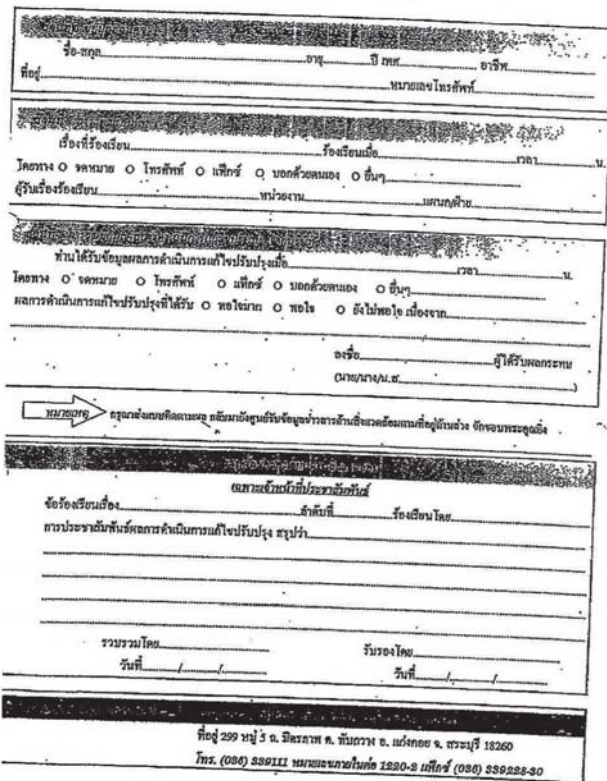 ชื่อ-สกุล อายุ ปี เพศ อาชีพ
ที่อยู่ หมายเลขโทรศัพท์
เรื่องที่ร้องเรียน ร้องเรียนเมื่อ เวลา น.
โดยทาง O จดหมาย O โทรศัพท์ O แฟ็กซ์ O บอกด้วยตนเอง O อื่นๆ
ผู้รับเรื่องร้องเรียน หน่วยงาน แผนก/ฝ่าย
ท่านได้รับข้อมูลผลการดำเนินการแก้ไขปรับปรุงเมื่อ เวลา น.
โดยทาง O จดหมาย O โทรศัพท์ O แฟ็กซ์ O บอกด้วยตนเอง O อื่นๆ
ผลการดำเนินการแก้ไขปรับปรุงที่ได้รับ O พอใจมาก O พอใจ O ยังไม่พอใจ เนื่องจาก
ลงชื่อ ผู้ได้รับผลกระทบ
(นาย/นาง/น.ส. )
หมายเหตุ กรุณาส่งแบบติดตามผล กลับมายังศูนย์รับข้อมูลข่าวสารด้านสิ่งแวดล้อมตามที่อยู่ด้านล่าง จักขอบพระคุณยิ่ง
เฉพาะเจ้าหน้าที่ประชาสัมพันธ์
ข้อร้องเรียนเรื่อง ลำดับที่ ร้องเรียนโดย
การประชาสัมพันธ์ผลการดำเนินการแก้ไขปรับปรุง สรุปว่า
รวบรวมโดย รับรองโดย
วันที่ / / วันที่ / /
ที่อยู่ 299 หมู่ 5 ถ. มิตรภาพ ต. ทับกวาง อ. แก่งคอย จ. สระบุรี 18260
โทร. (036) 339111 หมายเลขภายในต่อ 1220-2 แฟ็กซ์ (036) 339228-30